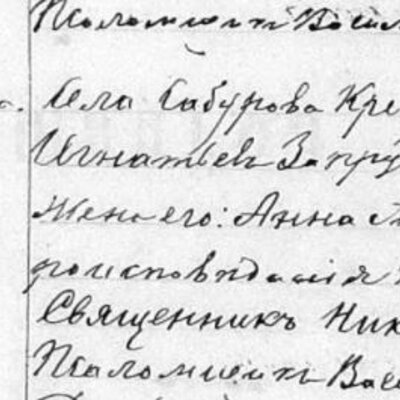 Псаломщикъ Васил
Села Сабурова Кре
Игнатьевъ Запру
Жена его: Анна А
роисповѣданія
Священникъ Ник
Псаломщикъ Васи